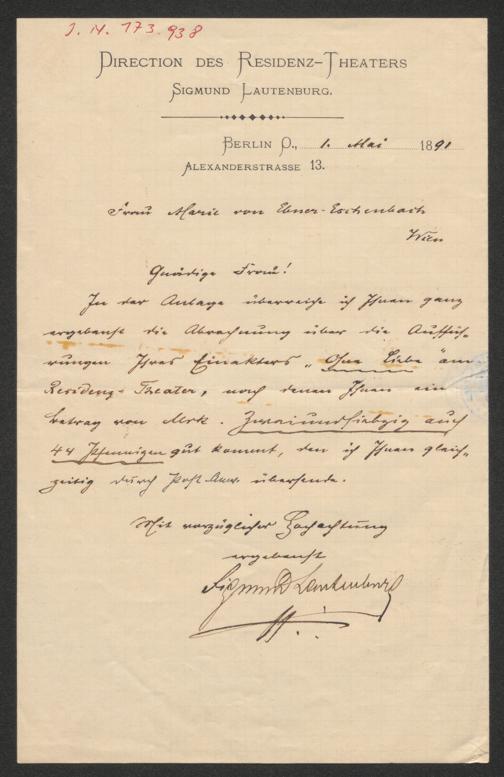 J. N. 173.938
DIRECTION DES RESIDENZ-THEATERS
SIGMUND LAUTENBURG.
BERLIN O., 1. Mai 1891
ALEXANDERSTRASSE 13.
Frau Marie von Ebner-Eschenbach
Wien
Gnädige Frau!
In der Anlage überreiche ich Ihnen ganz
ergebenst die Abrechnung über die Auffüh-
rungen Ihres Einakters „Ohne Liebe" am
Residenz-Theater, nach denen Ihnen ein
Betrag von Mrk. Zweiundsiebzig auch
44 Pfennigen gut kommt, den ich Ihnen gleich-
zeitig durch Post Anw. übersende.
Mit vorzüglicher Hochachtung
ergebenst
Sigmund Lautenburg